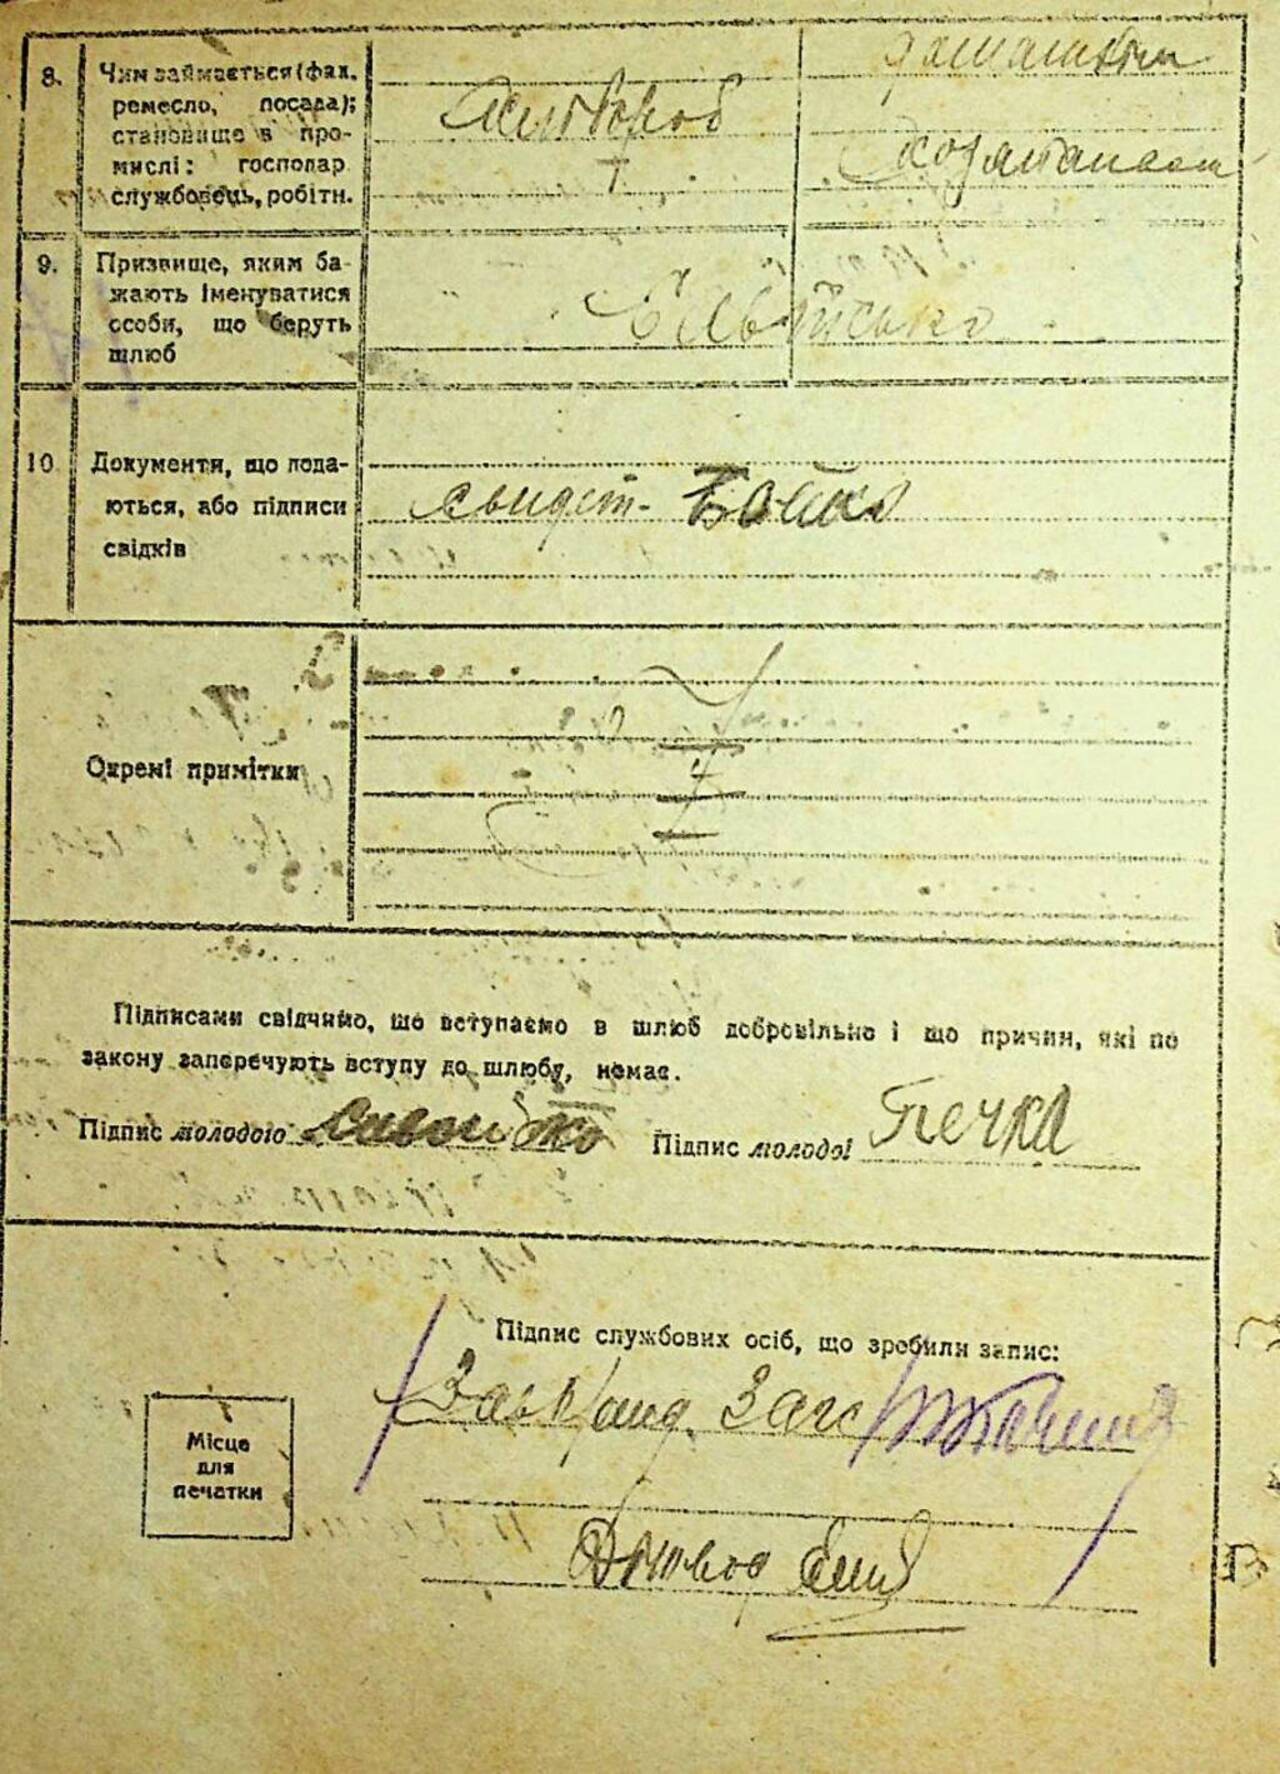 8. Чим займається (фах,
ремесло, посада);
становище в про-
мислі: господар
службовець, робітн.
Хлібороб
домашня
9. Призвище, яким ба-
жають іменуватися
особи, що беруть
шлюб
10 Документи, що пода-
ються, або підписи
свідків
свидет- Бойко
Окремі примітки
Підписами свідчимо, що вступаємо в шлюб добровільно і що причин, які по
закону заперечують вступу до шлюбу, немає.
Підпис молодого Підпис молодої Печка
Підпис службових осіб, що зробили запис:
Загс
Місце
для
печатки
Діловод